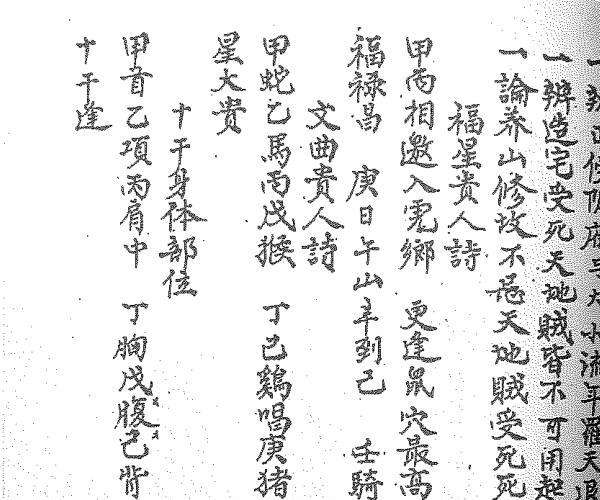 一辨造宅受死天地賊皆不可用
一論养山修坟不忌天地賊受死死
福星贵人詩
甲丙相邀入虎鄉 更逢鼠穴最高
福禄昌 庚日午山辛到己 壬騎
文曲貴人詩
甲蛇乙馬丙戊猴 丁己鷄唱庚猪
星大貴
十干身体部位
甲首乙項丙肩中 丁胸戊腹己背
十干逢